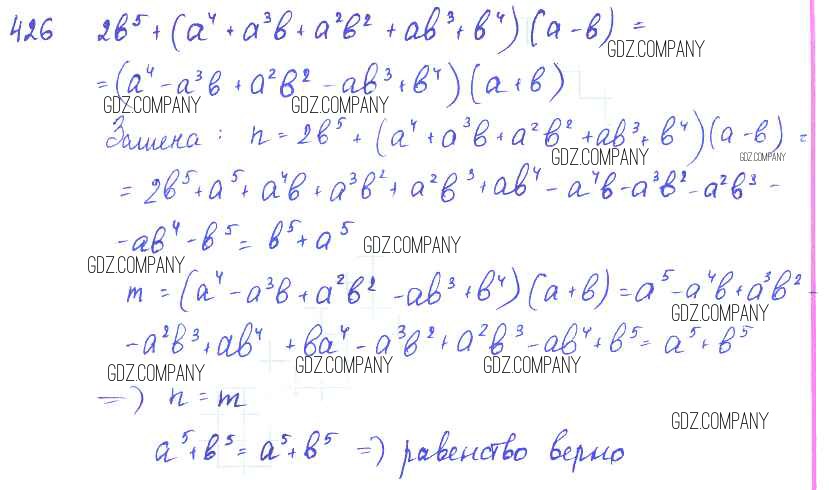 426 2b⁵ + (a⁴ + a³b + a²b² + ab³ + b⁴)(a - b) =
GDZ.COMPANY
= (a⁴ - a³b + a²b² - ab³ + b⁴)(a + b)
GDZ.COMPANY GDZ.COMPANY
Замена: n = 2b⁵ + (a⁴ + a³b + a²b² + ab³ + b⁴)(a - b) =
GDZ.COMPANY GDZ.COMPANY
= 2b⁵ + a⁵ + a⁴b + a³b² + a²b³ + ab⁴ - a⁴b - a³b² - a²b³ -
- ab⁴ - b⁵ = b⁵ + a⁵ GDZ.COMPANY
GDZ.COMPANY
m = (a⁴ - a³b + a²b² - ab³ + b⁴)(a + b) = a⁵ - a⁴b + a³b² -
GDZ.COMPANY
- a²b³ + ab⁴ + ba⁴ - a³b² + a²b³ - ab⁴ + b⁵ = a⁵ + b⁵
GDZ.COMPANY GDZ.COMPANY GDZ.COMPANY
=> n = m
GDZ.COMPANY
a⁵ + b⁵ = a⁵ + b⁵ => равенство верно